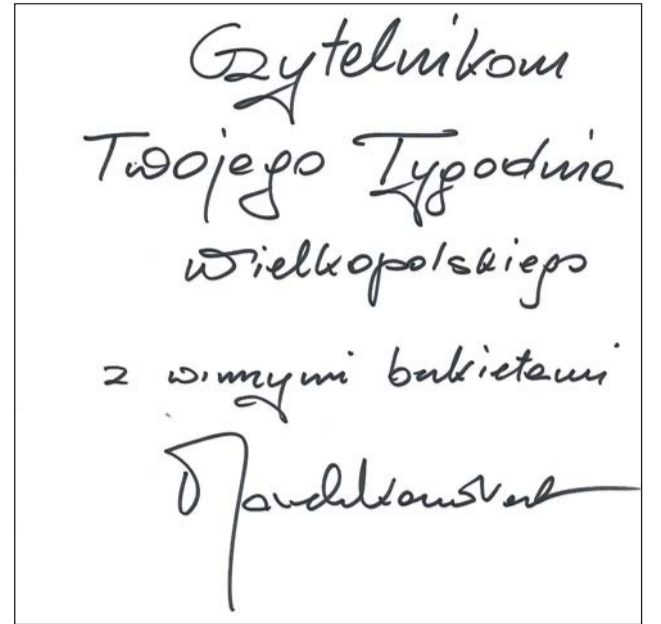 Czytelnikom
Twojego Tygodnia
Wielkopolskiego
z winnymi bukietami